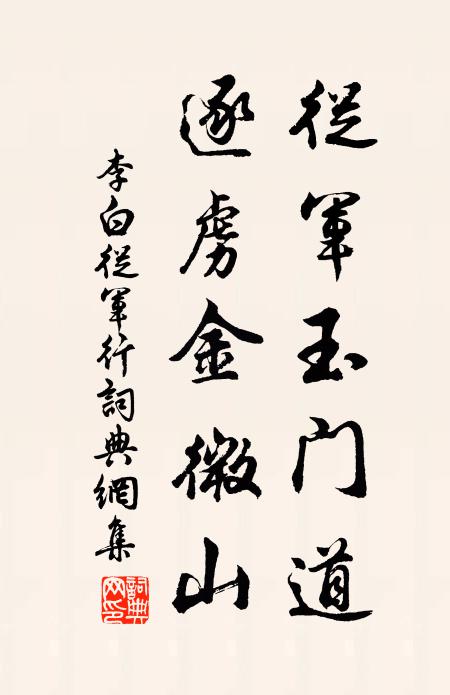 從軍玉門道
逐虜金微山
李白從軍行詞典網集
詞典
网印